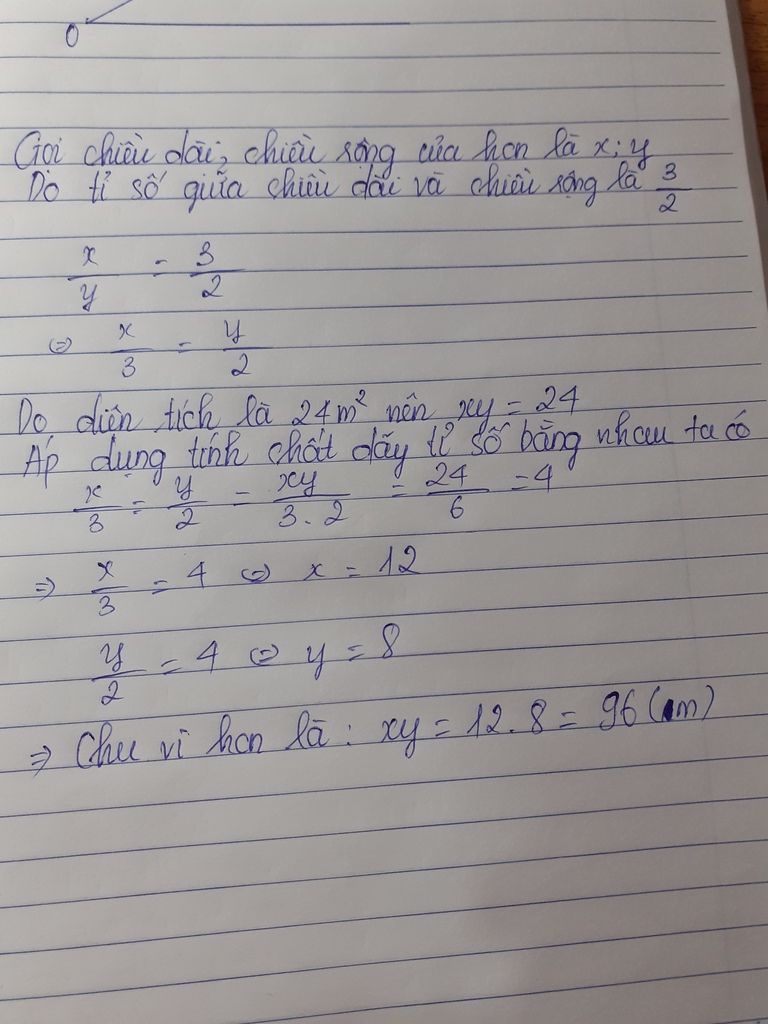 O
Gọi chiều dài, chiều rộng của hcn là x; y
Do tỉ số giữa chiều dài và chiều rộng là 3/2
x/y = 3/2
⇔ x/3 = y/2
Do diện tích là 24m² nên xy = 24
Áp dụng tính chất dãy tỉ số bằng nhau ta có
x/3 = y/2 = xy/3.2 = 24/6 = 4
⇒ x/3 = 4 ⇔ x = 12
y/2 = 4 ⇔ y = 8
⇒ Chu vi hcn là: xy = 12.8 = 96 (m)